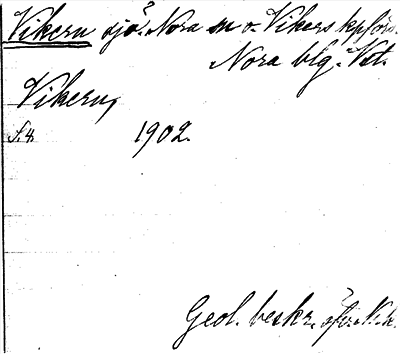 Vikern sjö. Nora sn o. Vikers kpförs.
Nora blg. Vst.
Vikern,
S. 4. 1902.
Geol. beskr. öfver